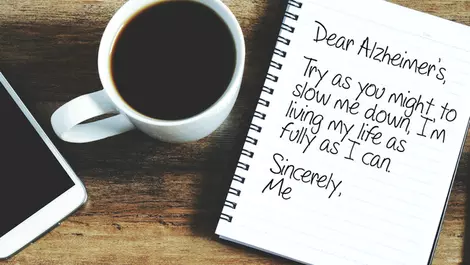 Dear Alzheimer's,
Try as you might to
slow me down, I'm
living my life as
fully as I can.
Sincerely,
Me